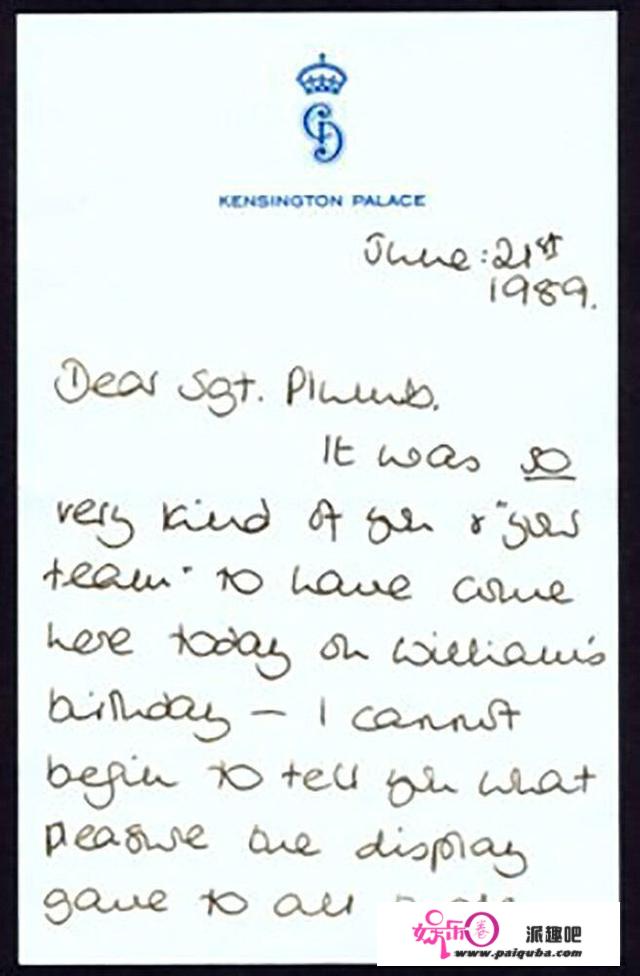 KENSINGTON PALACE
June: 21st
1989.
Dear Sgt. Plumb.
It was so
very kind of you & "your
team" to have come
here today on William's
birthday — I cannot
begin to tell you what
pleasure the display
gave to all
娱乐圈 派趣吧
www.paiquba.com